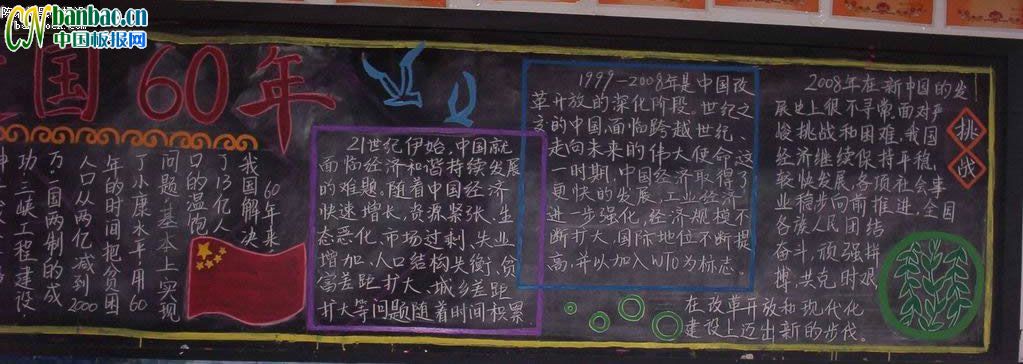 banbao.cn
中国板报网
国60年
60年来
我国解决
了13亿人
口的温饱
问题基本上实现
了小康水平用60
年的时间把贫困
人口从两亿减到2000
万.一国两制的成
功.三峡工程建设
21世纪伊始,中国就
面临经济和谐持续发展
的难题.随着中国经济
快速增长,资源紧张、生
态恶化、市场过剩、失业
增加,人口结构失衡,贫
富差距扩大、城乡差距
扩大等问题随着时间积累
1999—2008年是中国改
革开放的深化阶段.世纪之
交的中国,面临跨越世纪
走向未来的伟大使命.这
一时期,中国经济取得了
更快的发展,工业经济
进一步强化,经济规模不
断扩大,国际地位不断提
高,并以加入WTO为标志.
2008年在新中国的发
展史上很不寻常.面对严
峻挑战和困难,我国
经济继续保持平稳,
较快发展,各项社会事
业稳步向前推进,全国
各族人民团结
奋斗,顽强拼
搏,共克时艰
在改革开放和现代化
建设上迈出新的步伐.
挑
战